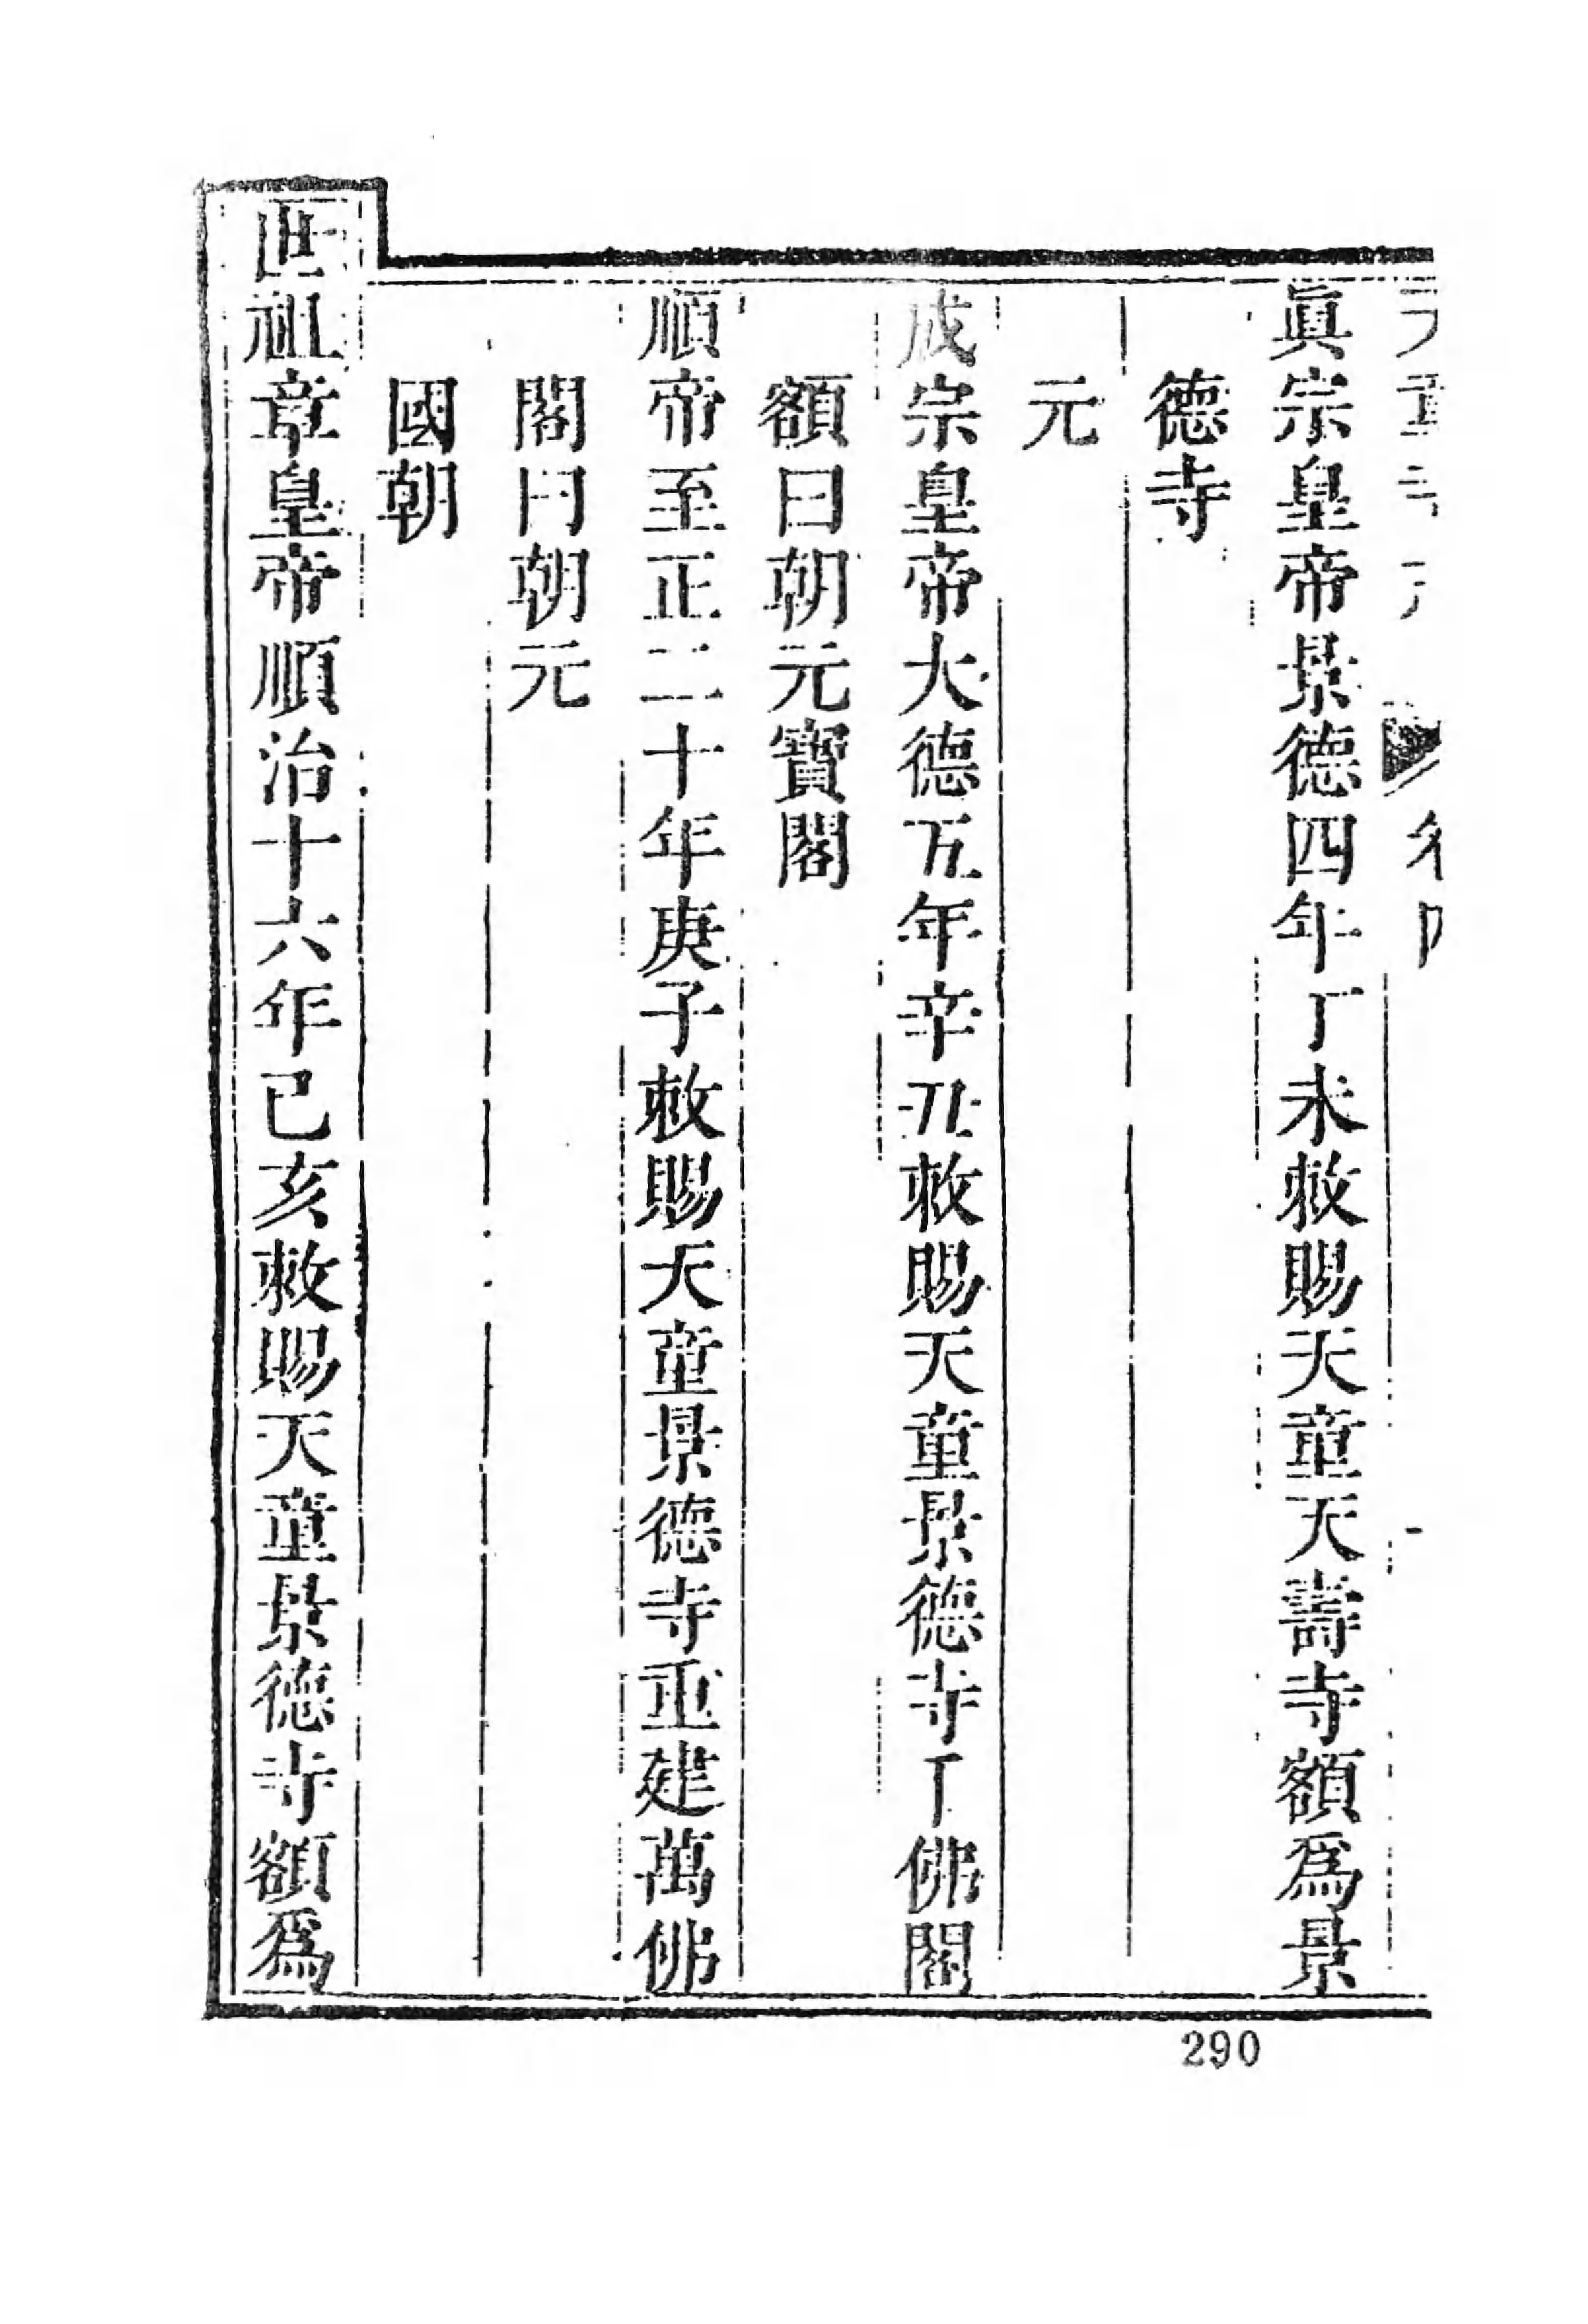 眞宗皇帝景德四年丁未敕賜天童天壽寺額爲景
德寺
元
成宗皇帝大德五年辛丑敕賜天童景德寺千佛閣
額曰朝元寶閣
順帝至正二十年庚子敕賜天童景德寺重建萬佛
閣曰朝元
國朝
世祖章皇帝順治十六年己亥敕賜天童景德寺額爲
290